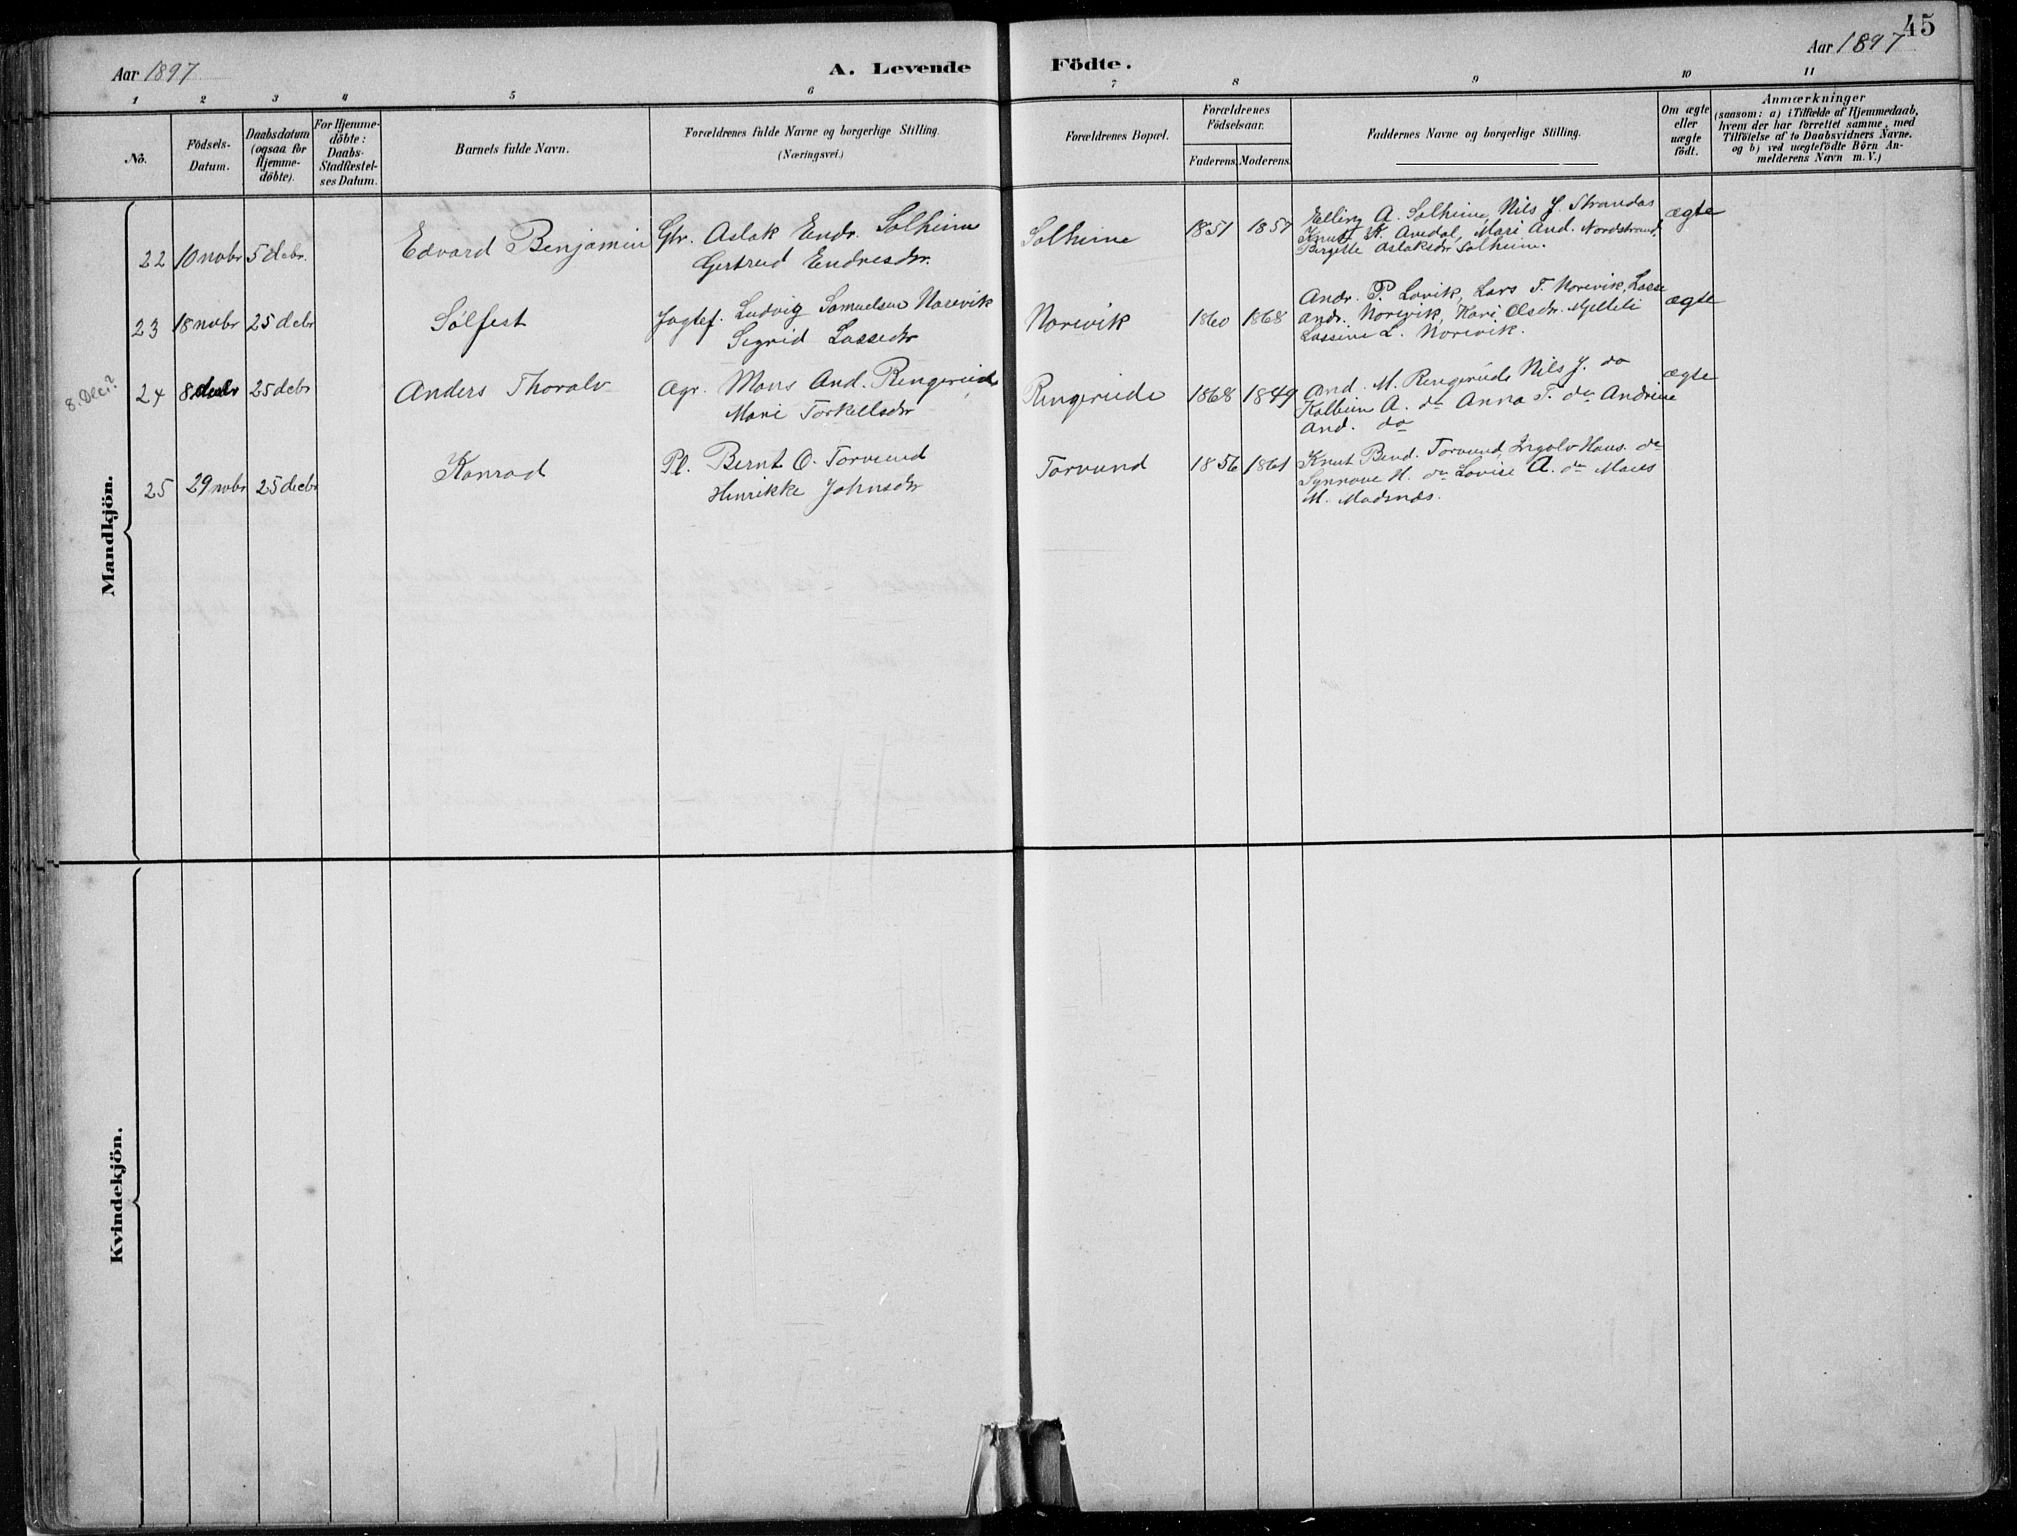 45
Aar 1897
A. Levende Födte.
Aar 1897
1 2 3 4 5 6 7 8 9 10 11
No.
Födsels-
Datum.
Daabsdatum
(ogsaa for
Hjemme-
döbte).
For Hjemme-
döbte:
Daabs-
Stadfæstel-
ses Datum.
Barnets fulde Navn.
Forældrenes fulde Navne og borgerlige Stilling.
(Næringsvei.)
Forældrenes Bopæl.
Forældrenes
Födselsaar.
Faderens. Moderens.
Faddernes Navne og borgerlige Stilling.
Om ægte
eller
uægte
födt.
Anmærkninger
(saasom: a) i Tilfælde af Hjemmedaab,
hvem der har forrettet samme, med
Tilföielse af to Daabsvidners Navne.
og b) ved uægtefödte Börn An-
melderens Navn m. V.)
Mandkjön.
22 10 novbr 5 debr. Edvard Benjamin Gbr. Aslak Endr. Solheim
Gertrud Endresdr.
Solheim 1851 1857
Elling A. Solheim, Nils J. Strandos
Knut K. Avedal, Mari And. Nordstrand,
Bergitte Aslaksdr Solheim.
ægte
23 18 novbr 25 debr Sölfest
Ludvig Samuelsen Norevik
Sigrid Lassedr
Norevik 1860 1868
Andr. P. Lovik, Lars T. Norevik, Lasse
Andr. Norevik, Kari Olsdr. Mjelleli
Lassine L. Norevik.
ægte
8. Dec.?
24 8 debr 25 debr Anders Thoralv
Mons And. Ringereide
Mari Torkellsdr
Ringereide 1868 1849
And. M. Ringereide Nils J. do
Kolbein A. do Anna T. do Andrine
And. do
ægte
25 29 novbr 25 decbr Konrad Pl. Bernt O. Torvund
Henrikke Johnsdr
Torvund 1856 1861
Knut Bend. Torvund, Ingolv Hans. do
Synnove H. do Lovise A. do Mons
M. Madsnes.
Kvindekjön.